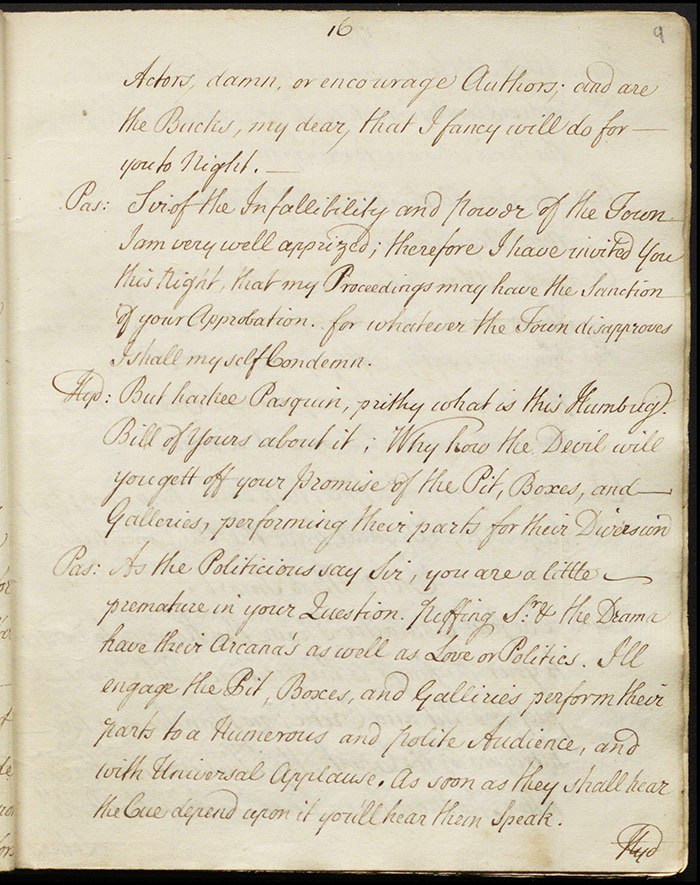 16
9
Actors, damn, or encourage Authors; and are
the Bucks, my dear, that I fancy will do for —
you to Night. —
Pas: Sir of the Infallibility and power of the Town
I am very well apprized; therefore I have invited You
this Night, that my Proceedings may have the Sanction
of your Approbation. for whatever the Town disapproves
I shall my self Condemn.
Hyd: But harkee Pasquin, prithy what is this Humbugg.
Bill of Yours about it; Why how the Devil will
you gett off your promise of the Pit, Boxes, and —
Galleries, performing their parts for their Diversion
Pas: As the Politicious say Sir, you are a little —
premature in your Question. puffing Sr. & the Drama
have their Arcana's as well as Love or Politics. I'll
engage the Pit, Boxes, and Galleries perform their
parts to a Numerous and polite Audience, and
with Universal Applause. As soon as they shall hear
the Cue depend upon it you'll hear them Speak.
Hyd